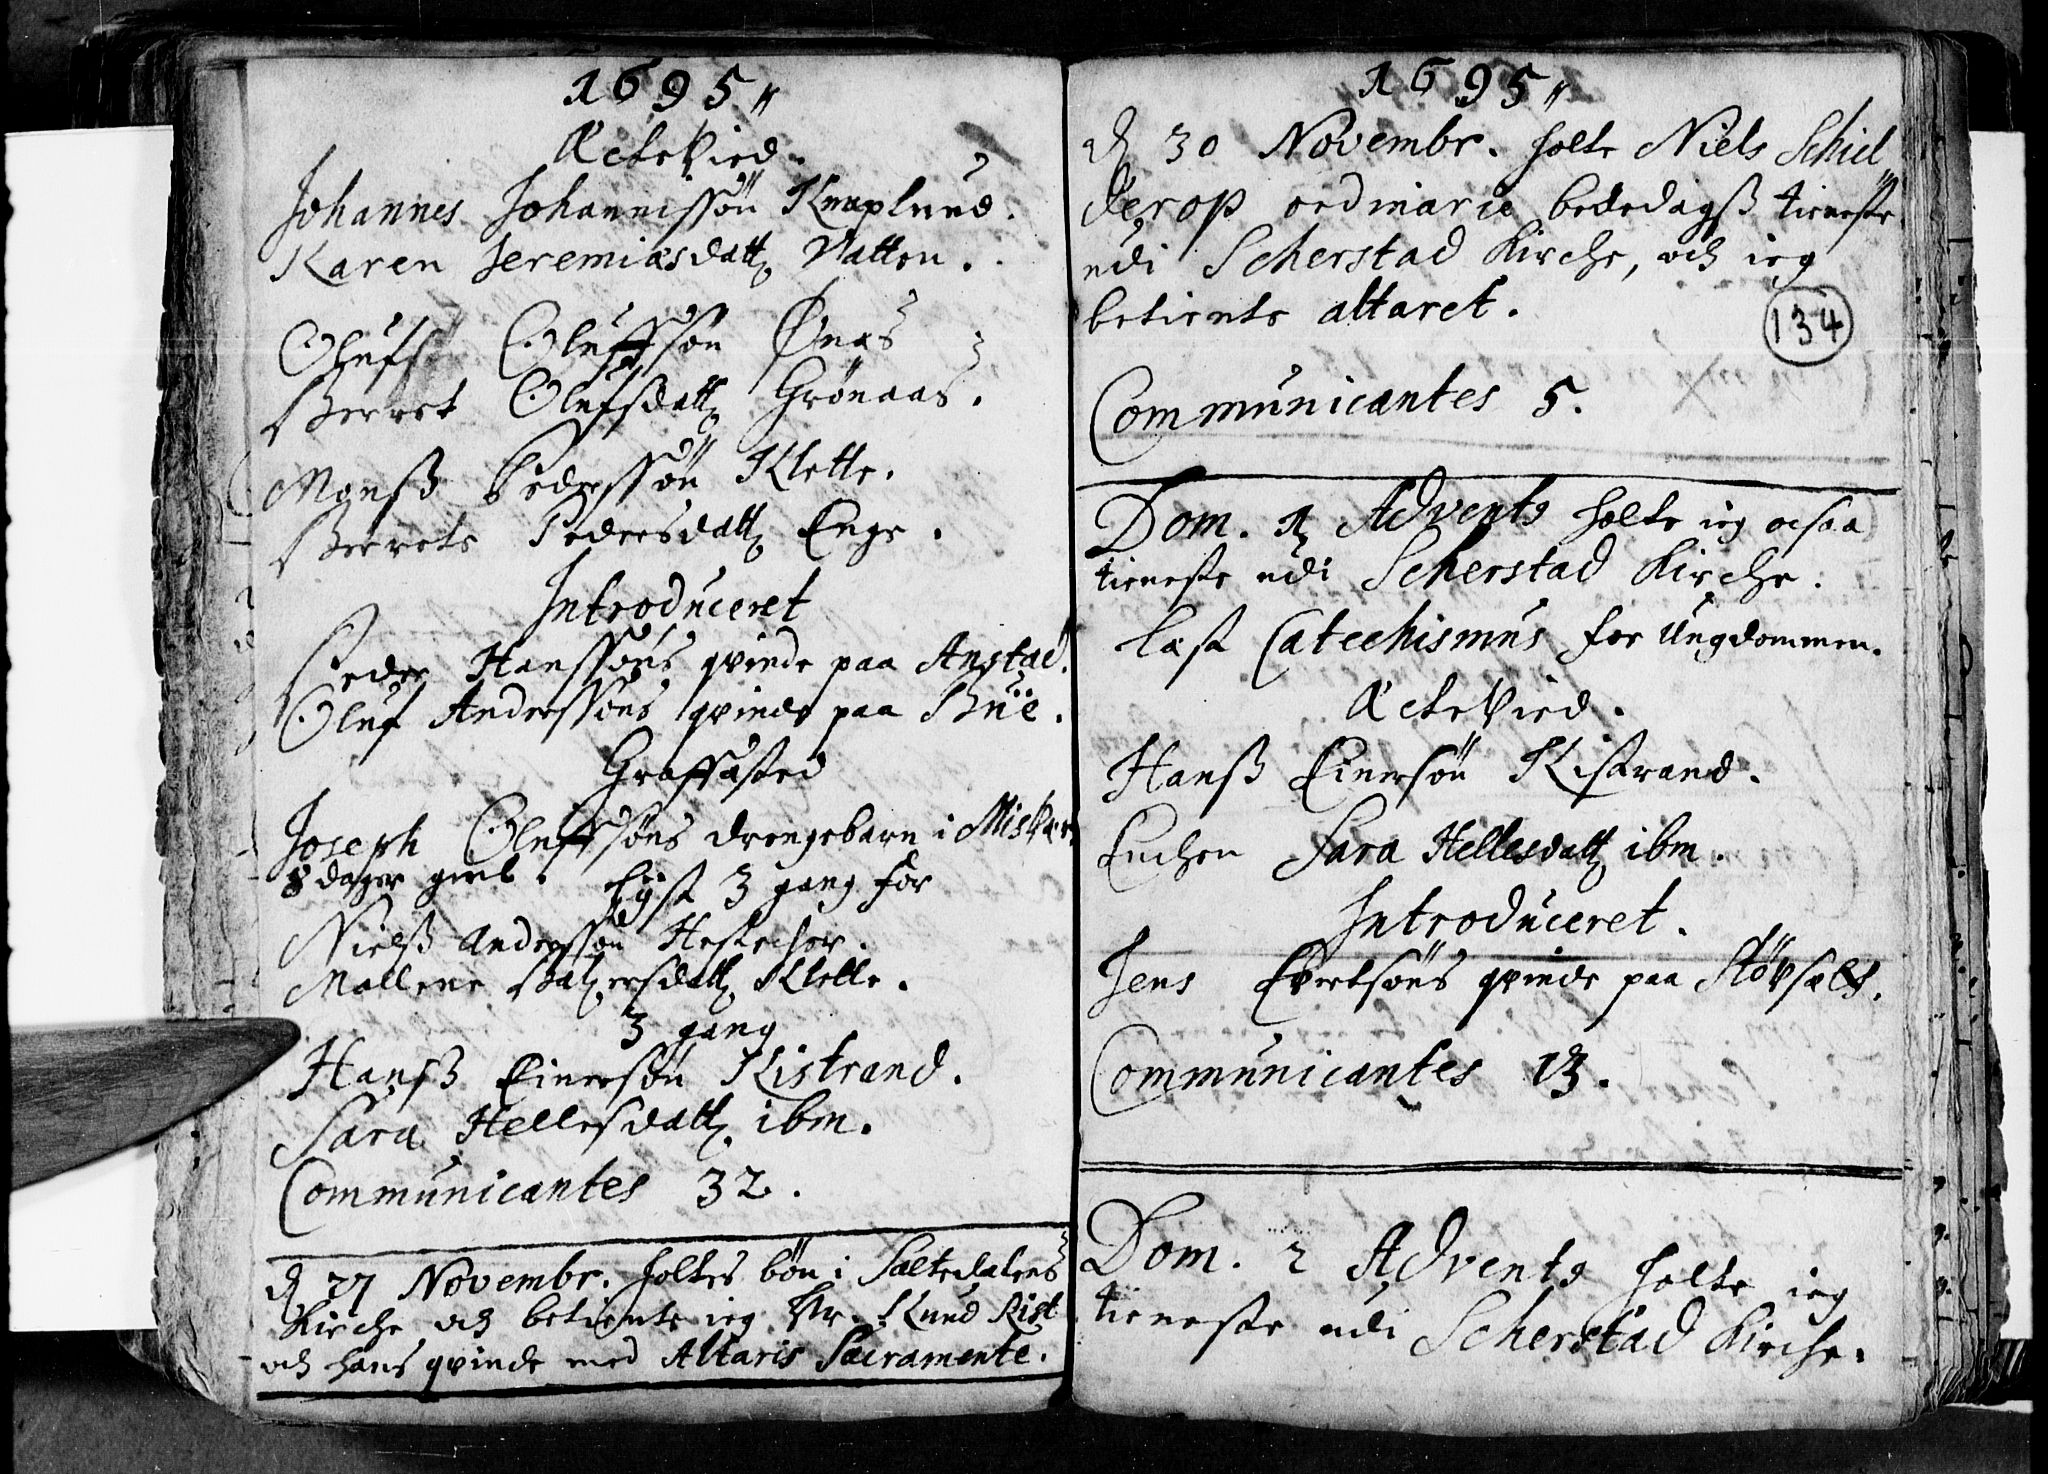 1695
ÆcteVied.
Johannes Johannissøn Knaplund.
Karen Jeremiæsdatt Vatten.
Oluff Oluffssøn Ønæs
Berret Olufsdatt Grønaas.
Monsß Pederssøn Klette.
Berrete Pedersdatt Enge.
Introduceret
Peder Hanssøns qvinde paa Anstad.
Oluf Anderssøns qvinde paa Bue.
Graffästed
Joseph Oluffsøns drengebarn i Misvær
8 dager giel. Lÿst 3 gang for
Nielß Anderssøn Hestehor.
Mallene Baltzersdatt Klette.
3 gang
Hanß Einersøn Kistrand.
Sara Hellesdatt ibm.
Communicantes 32.
d 27 Novembr. holtes bøn i Saltedalens
Kirche och betiente ieg Hr. Knud Rist
och hans qvinde med Altaris Sacramente.
1695
d 30 Novembr. holte Niels Schiel
derop ordinarie bededagß tieneste
udi Scherstad Kirche, och ieg
betiente altaret.
134
Communicantes 5.
Dom. 1 Advents holte ieg ocsaa
tieneste udi Scherstad Kirche.
læst Catechismus for Ungdommen.
ÆcteVied.
Hanß Einersøn Kistrand.
Enchen Sara Hellesdatt ibm.
Introduceret.
Jens Evertsøns qvinde paa Støvsæt.
Communicantes 13.
Dom. 2 Advents holte ieg
tieneste udi Scherstad Kirche.